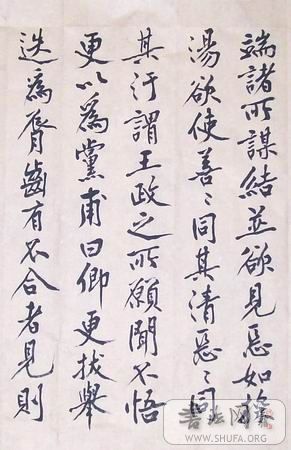 端諸所謀結並欲見惡如探
湯欲使善〻同其清惡〻同
其汙謂王政之所願聞不悟
更以為黨甫曰卿更拔舉
迭為脣齒有不合者見則
書法网
WWW.SHUFA.ORG